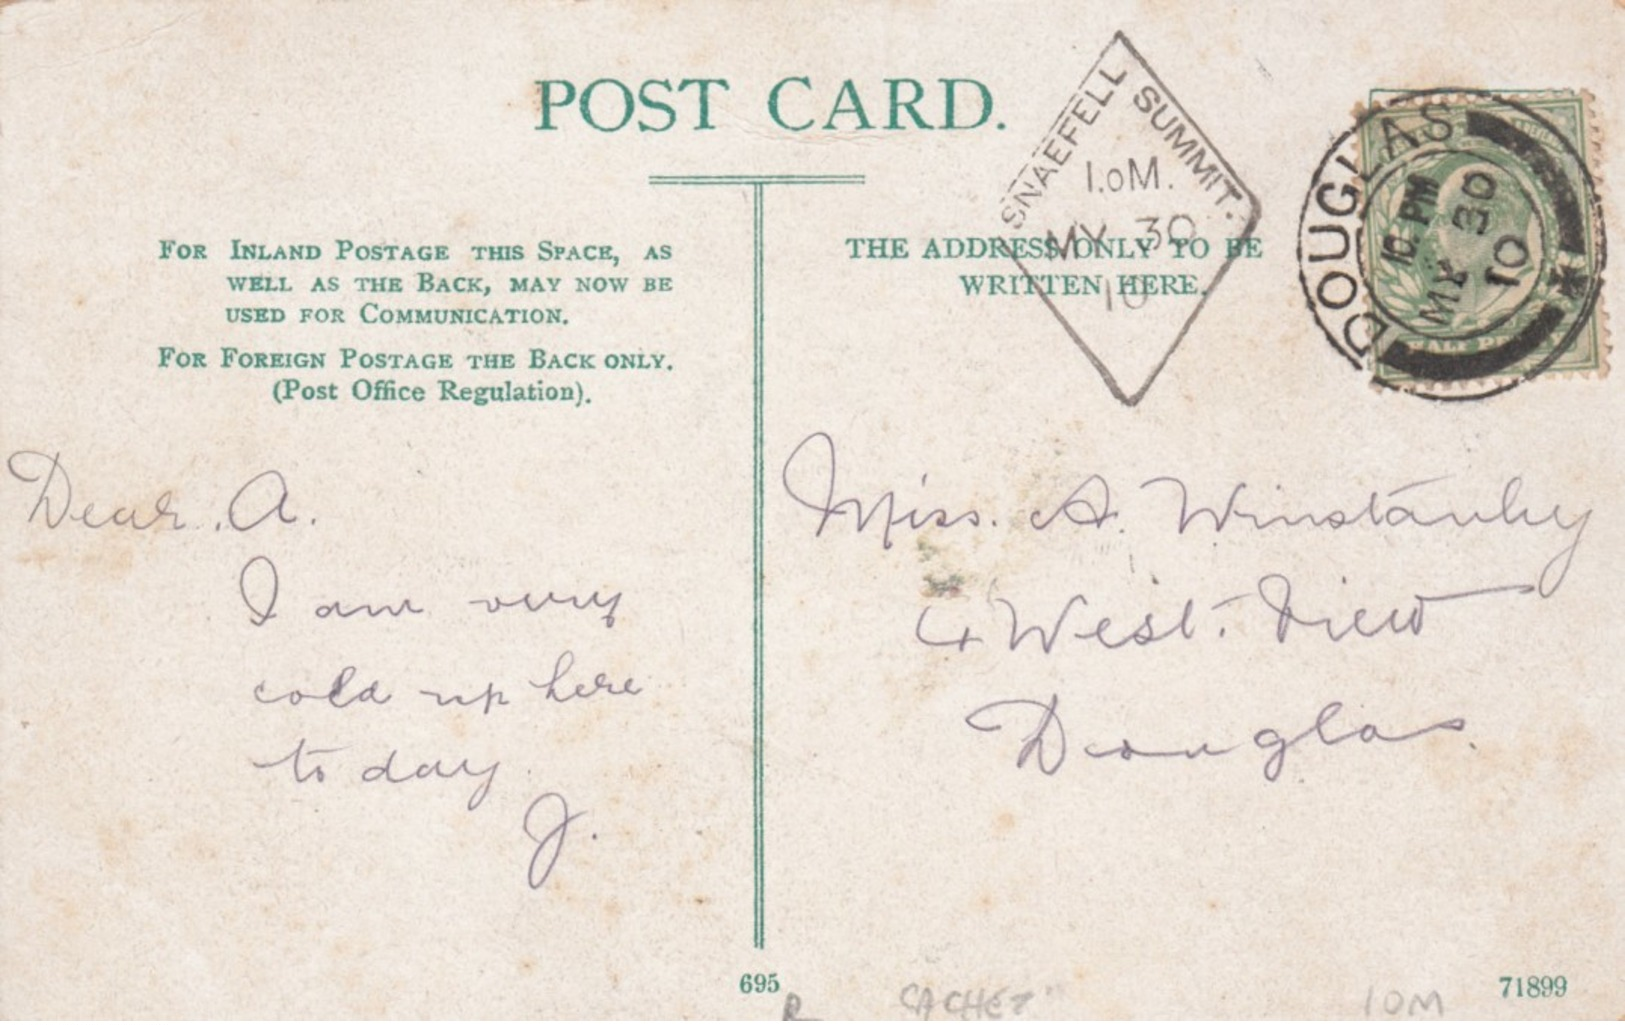 POST CARD.
FOR INLAND POSTAGE THIS SPACE, AS
WELL AS THE BACK, MAY NOW BE
USED FOR COMMUNICATION.
FOR FOREIGN POSTAGE THE BACK ONLY.
(Post Office Regulation).
THE ADDRESS ONLY TO BE
WRITTEN HERE.
SNAEFELL SUMMIT.
I.OM.
MY 30
10
DOUGLAS
10. PM
MY 30
10
HALF PE
Dear. A.
I am very
cold up here
to day
J.
Miss. A. Winstanley
4 West. View
Douglas.
695
71899
R
CACHET
IOM